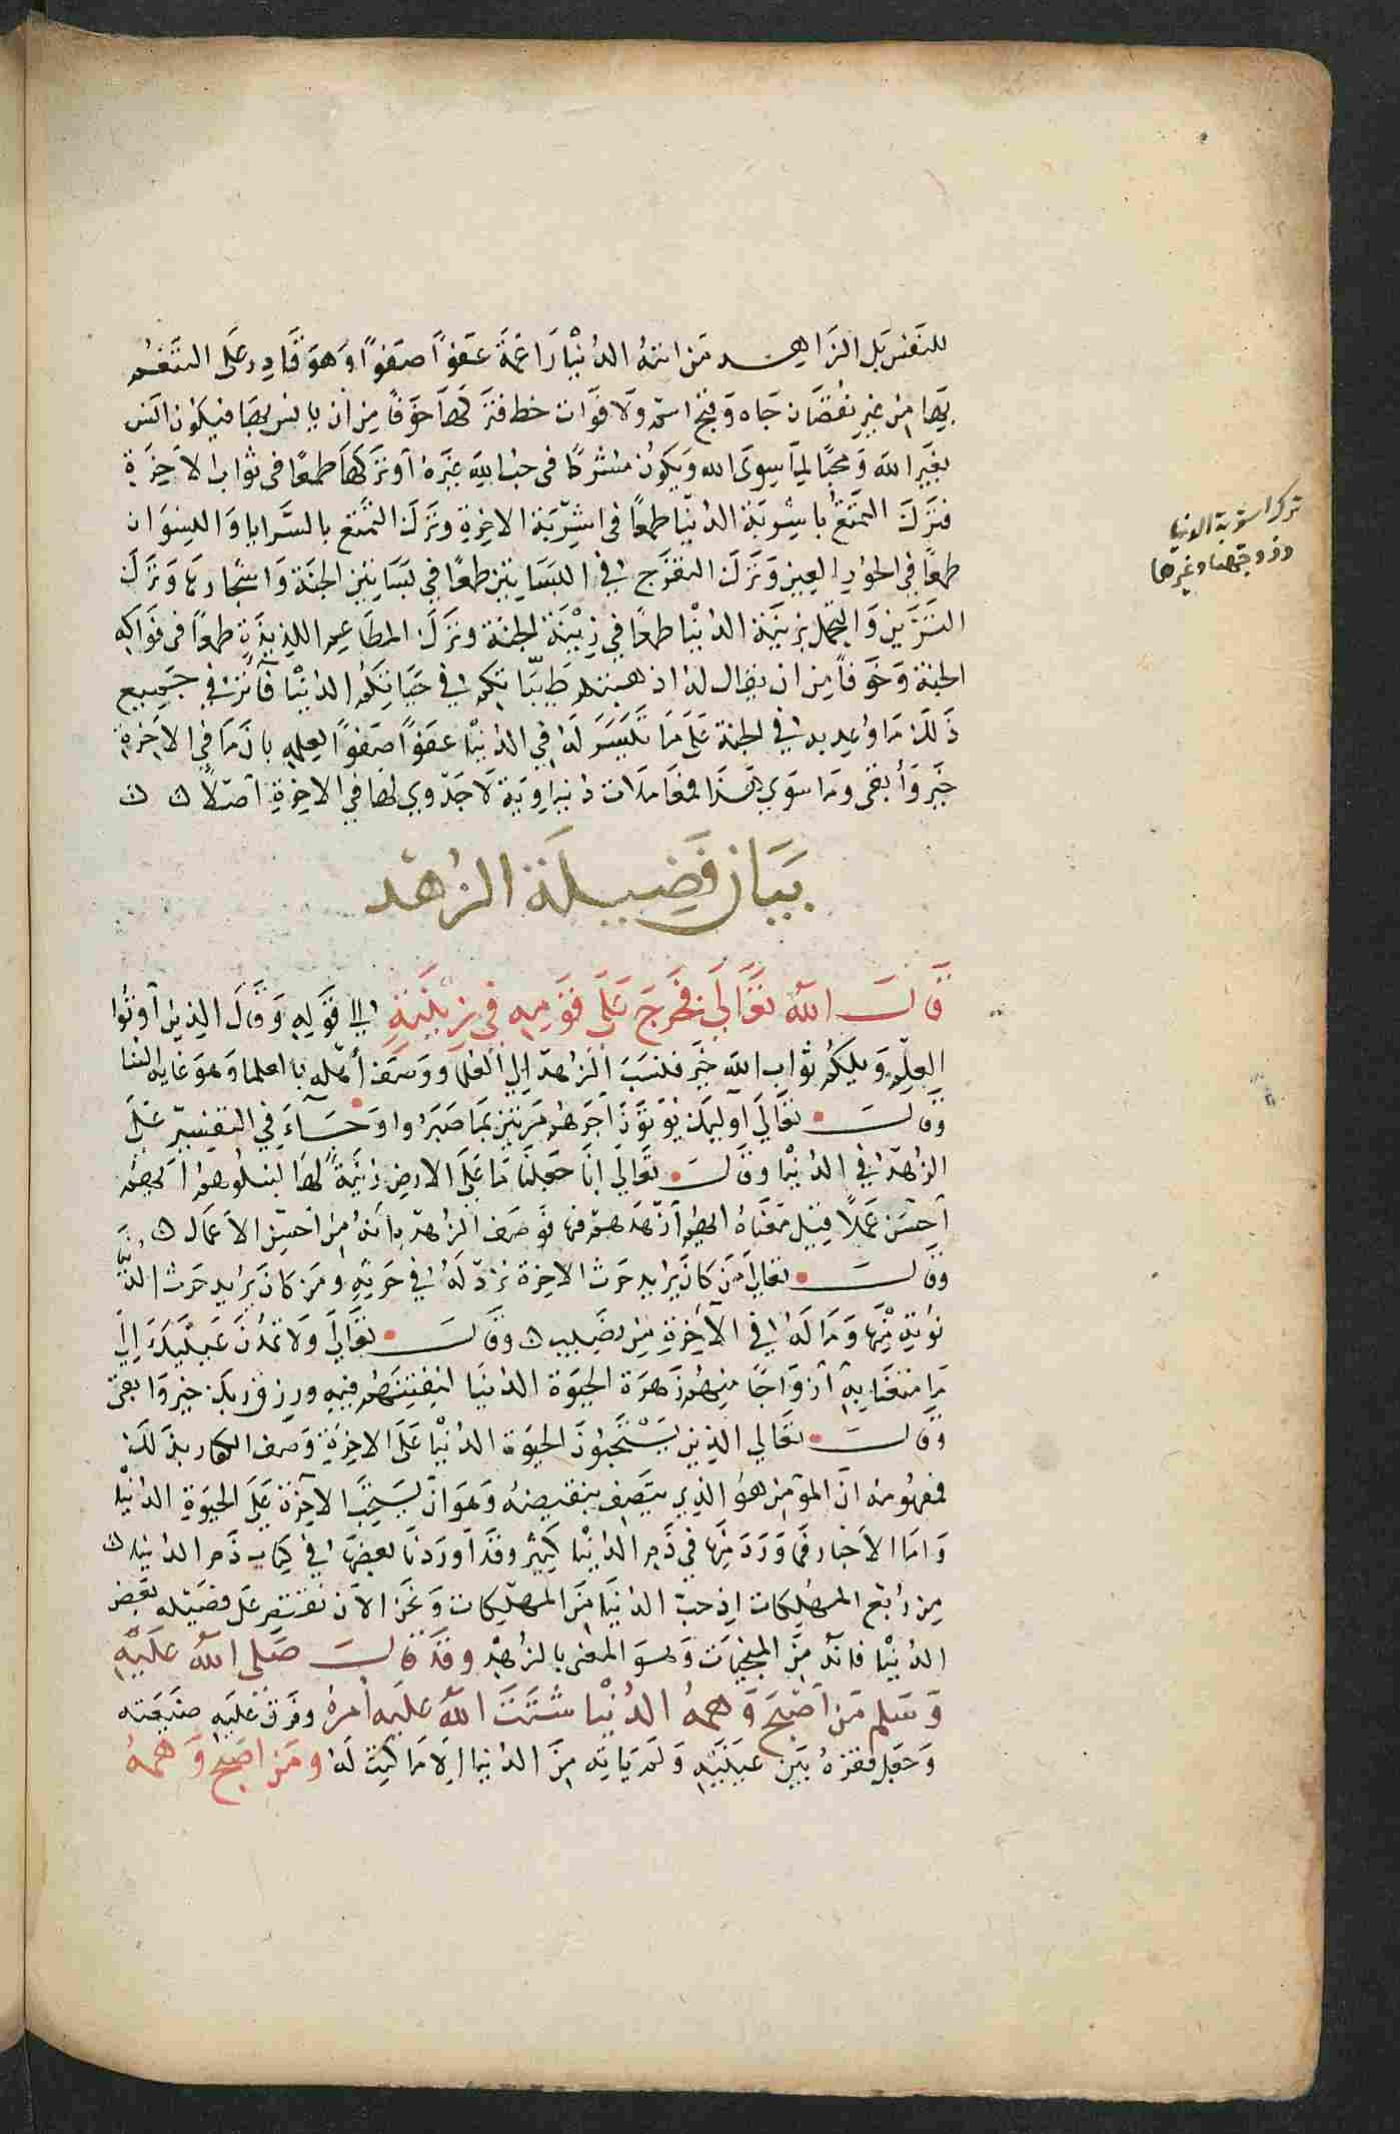 للنفس بل الزاهد من اتته الدنيا راغمة عفوا صفوا وهو قادر على التنعم
بها من غير نقصان جاه وقبح اسم ولا فوات حظ فتركها خوفا من ان يانس بها فيكون انس
بغير الله ومحبا لما سوى الله ويكون مشركا فى حب الله غيره او تركها طمعا فى ثواب الاخرة
فترك التمتع باشربة الدنيا طمعا فى اشربة الاخرة وترك التمتع بالسرايا والنسوان
طمعا في الحور العين وترك التفرج في البساتين طمعا في بساتين الجنة واشجارها وترك
التزين والتجمل بزينة الدنيا طمعا في زينة الجنة وترك المطاعم اللذيذة طمعا في فواكه
الجنة وخوفا من ان يقال له اذهبتم طيباتكم في حياتكم الدنيا فآثر في جميع
ذلك ما وعد به في الجنة على ما تيسر له في الدنيا عفوا صفوا لعلمه بان ما في الاخرة
خير وأبقى وما سوى هذا فمعاملات دنياوية لا جدوي لها في الاخرة اصلا
بيان فضيلة الزهد
قال الله تعالى فخرج على قومه فى زينته الي قوله وقال الذين أوتوا
العلم ويلكم ثواب الله خير فنسب الزهد الي العلما ووصف أهله بالعلم وهو غاية الثنا
وقال تعالى أوليك يؤتون اجرهم مرتين بما صبروا وجاء في التفسير على
الزهد في الدنيا وقال تعالى انا جعلنا ما على الارض زينة لها لنبلوهم ايهم
أحسن عملا قيل معناه ايهم أزهد فيها فوصف الزهد بانه من أحسن الاعمال
وقال تعالى من كان يريد حرث الاخرة نزد له في حرثه ومن كان يريد حرث الدنيا
نؤته منها وما له في الآخرة من نصيب وقال تعالى ولا تمدن عينيك إلى
ما متعنا به أزواجا منهم زهرة الحيوة الدنيا لنفتنهم فيه ورزق ربك خير وابقى
وقال تعالى الذين يستحبون الحيوة الدنيا على الاخرة وصف الكفار بذلك
فمفهومه ان المؤمن هو الذي يتصف بنقيضه وهو ان يستحب الآخرة على الحيوة الدنيا
واما الاخبار فما ورد منها في ذم الدنيا كثير وقد أوردنا بعضها في كتاب ذم الدنيا
من ربع المهلكات اذ حب الدنيا من المهلكات ونحن الآن نقتصر على فضيلة بغض
الدنيا فانه من المنجيات وهو المعنى بالزهد وقد قال صلى الله عليه
وسلم من اصبح وهمه الدنيا شتت الله عليه امره وفرق عليه ضيعته
وجعل فقره بين عينيه ولم ياته من الدنيا الا ما كتب له ومن اصبح وهمه
ترك اشربة الدنيا
وزوجتها وغيرها